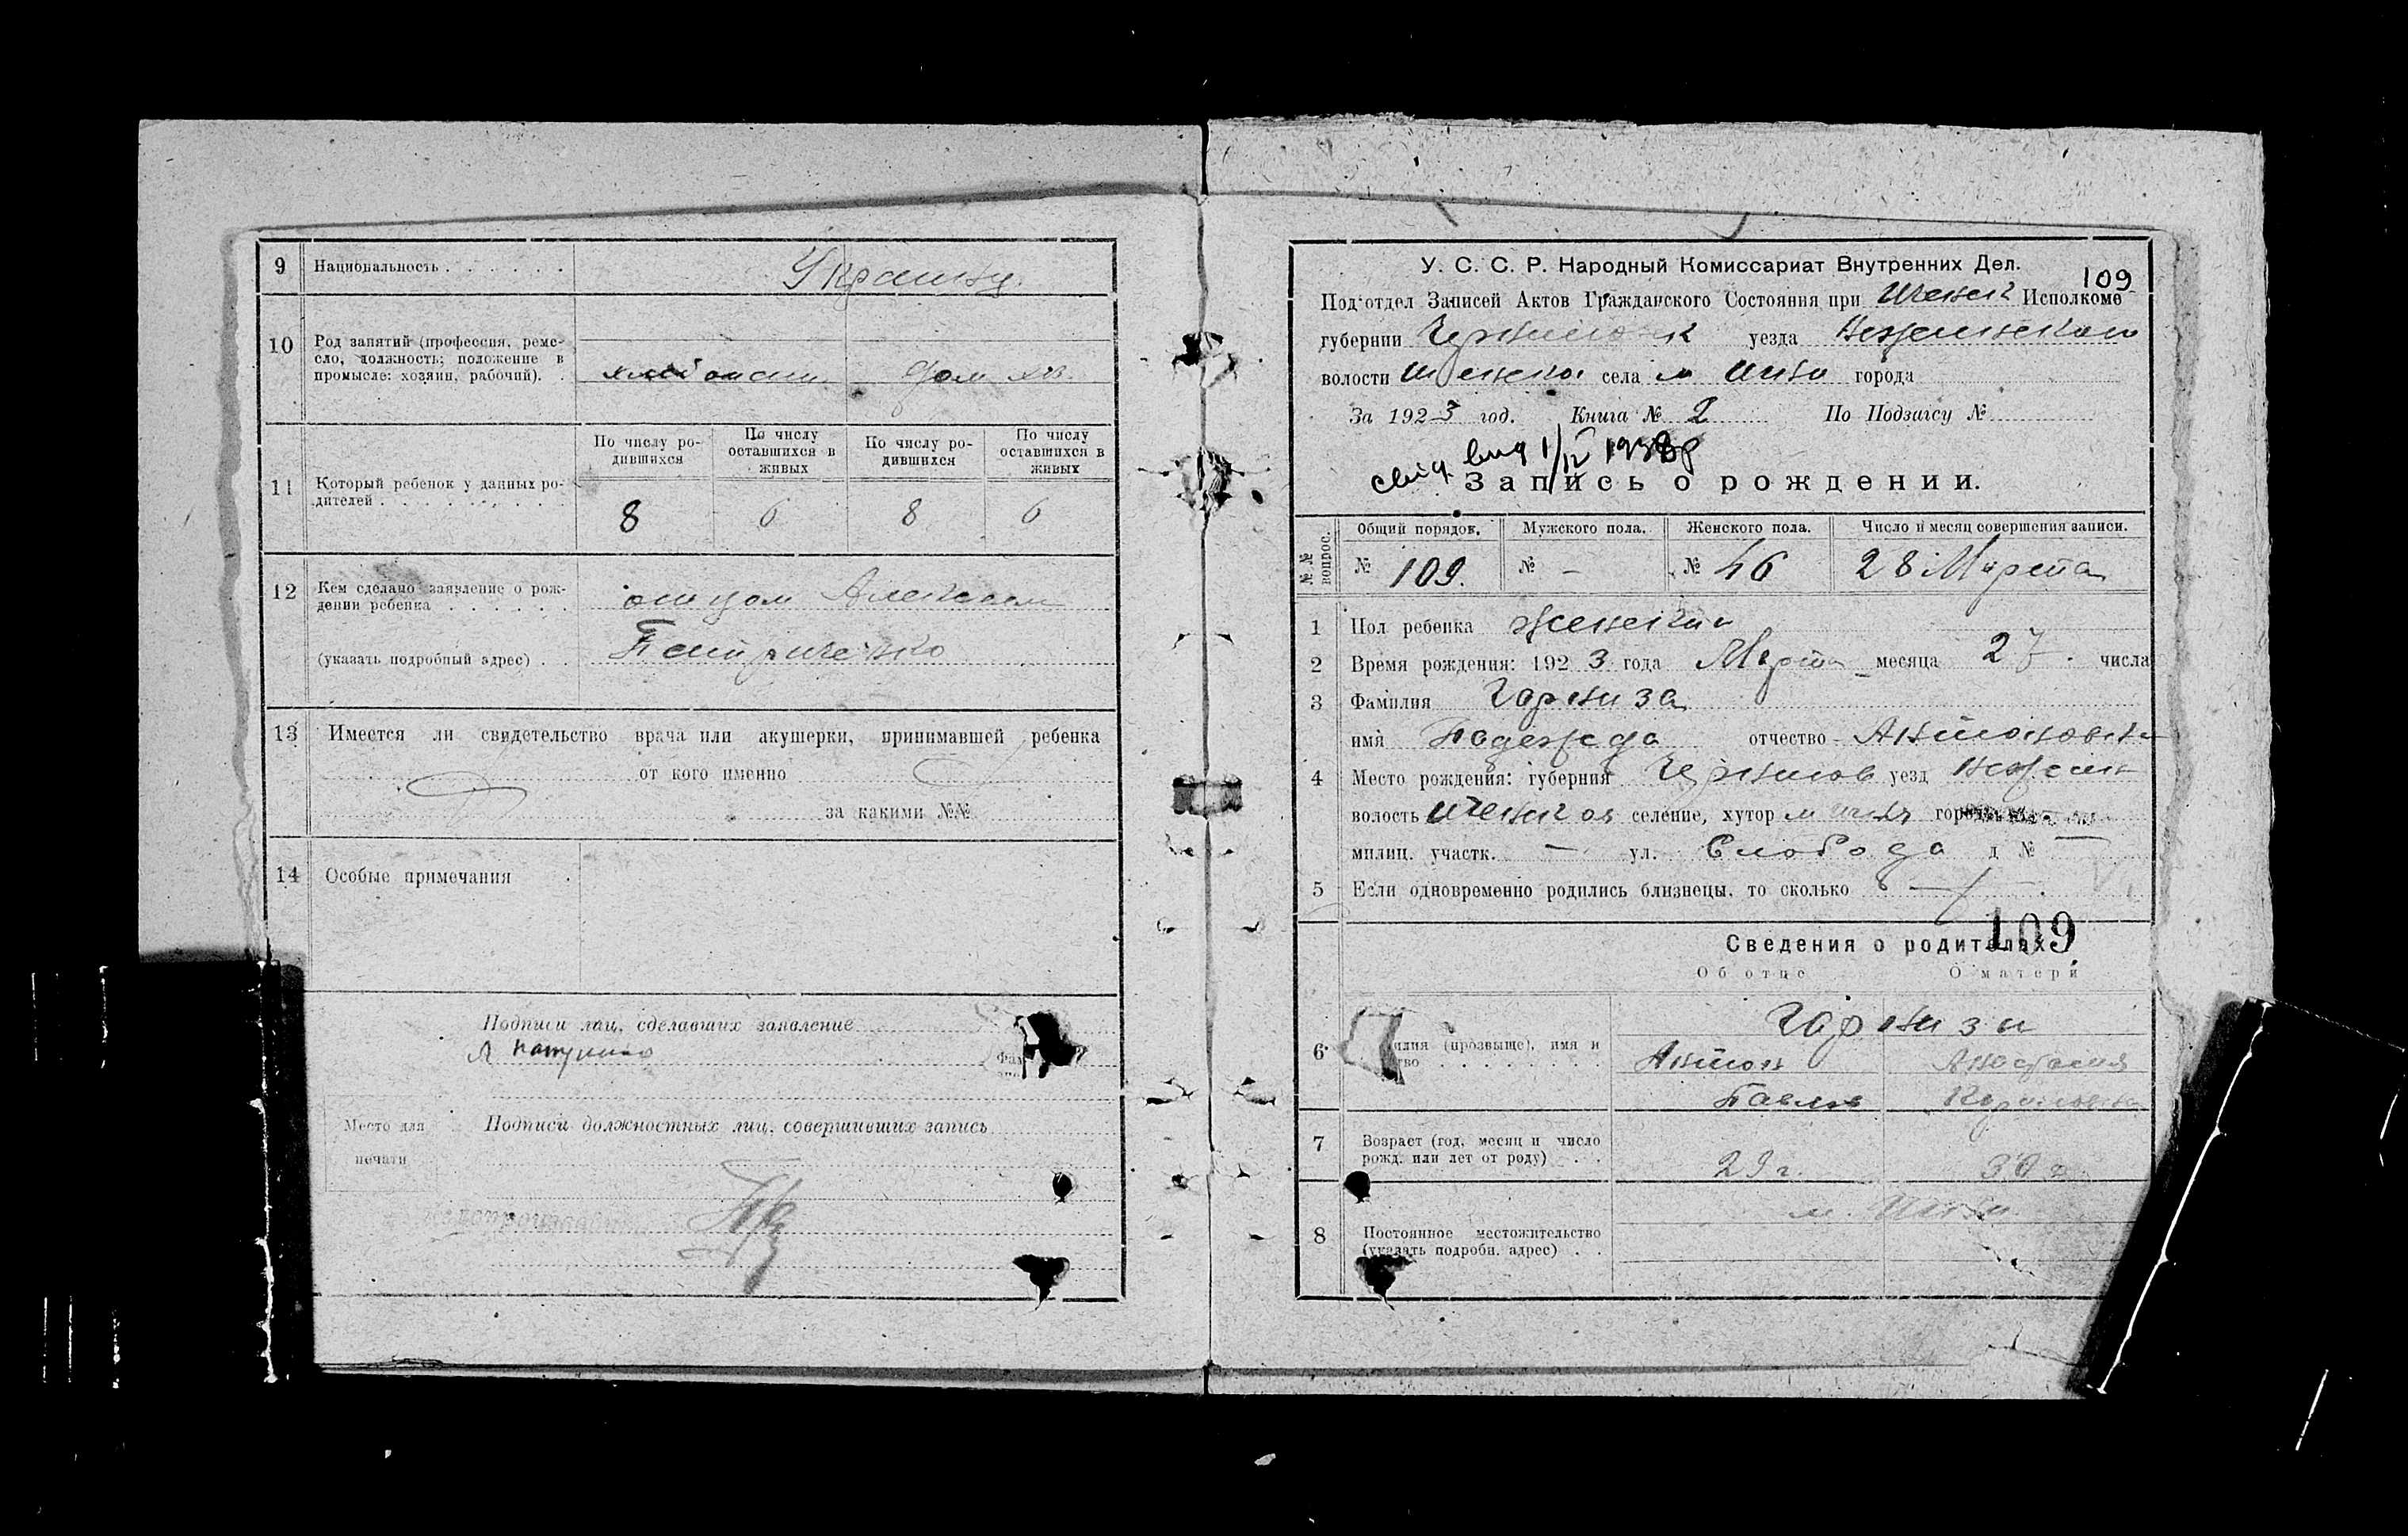 9 Национальность . . . . . .
Украинцы
10 Род занятий (профессия, ремесло, должность; положение в промысле: хозяин, рабочий). .
дом хв.
11 Который ребенок у данных родителей . . . . . . . . .
По числу родившихся
По числу оставшихся в живых
По числу родившихся
По числу оставшихся в живых
8 6 8 6
12 Кем сделано заявление о рождении ребенка . . . . . .
отцом Алексеем
(указать подробный адрес) . .
13 Имеется ли свидетельство врача или акушерки, принимавшей ребенка
от кого именно
за какими №№
14 Особые примечания
Подписи лиц, сделавших заявление
Место для печати
Подписи должностных лиц, совершивших запись
109
У. С. С. Р. Народный Комиссариат Внутренних Дел.
Под'отдел Записей Актов Гражданского Состояния при Иченск Исполкоме
губернии Черниговск уезда Неженского
волости села м Ични города
За 1923 год. Книга № 2 По Подзагсу №
свид. выд 1/IV 1938р
Запись о рождении.
№№ вопрос.
Общий порядок. Мужского пола. Женского пола. Число и месяц совершения записи.
№ 109. № - № 46 28 Марта
1 Пол ребенка женский
2 Время рождения: 1923 года Марта месяца 27. числа
3 Фамилия Гарниза
имя Надежда отчество Антоновна
4 Место рождения: губерния Чернигов уезд Нежин
волость Иченская селение, хутор м Ичня город
милиц. участк. — ул. Слобода д № —
5 Если одновременно родились близнецы, то сколько —
109
Сведения о родителях
Об отце О матери
6 илия (прозвище), имя и тво . . . . . . . .
Гарнизи
Антон Анастасия
Павлов Кириловна
7 Возраст (год, месяц и число рожд. или лет от роду) . .
30 г
8 Постоянное местожительство (указать подробн. адрес) . .
м. Ични